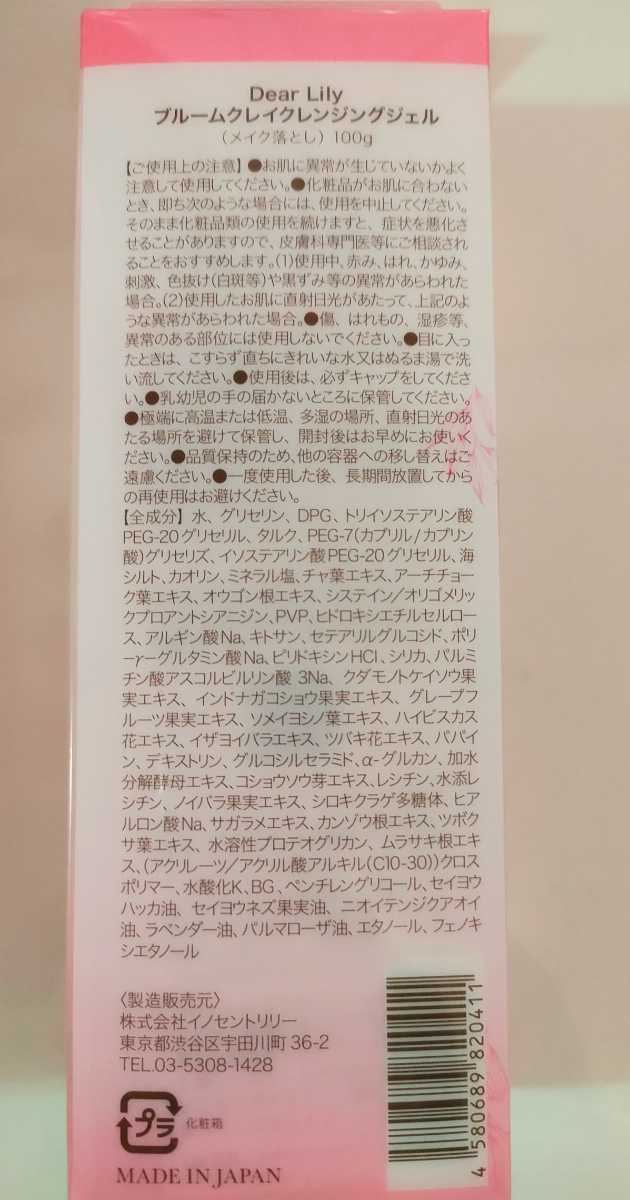 Dear Lily
ブルームクレイクレンジングジェル
(メイク落とし) 100g
【ご使用上の注意】●お肌に異常が生じていないかよく
注意して使用してください。●化粧品がお肌に合わない
とき、即ち次のような場合には、使用を中止してください。
そのまま化粧品類の使用を続けますと、症状を悪化さ
せることがありますので、皮膚科専門医等にご相談され
ることをおすすめします。(1)使用中、赤み、はれ、かゆみ、
刺激、色抜け(白斑等)や黒ずみ等の異常があらわれた
場合。(2)使用したお肌に直射日光があたって、上記のよ
うな異常があらわれた場合。●傷、はれもの、湿疹等、
異常のある部位には使用しないでください。●目に入っ
たときは、こすらず直ちにきれいな水又はぬるま湯で洗
い流してください。●使用後は、必ずキャップをしてくださ
い。●乳幼児の手の届かないところに保管してください。
●極端に高温または低温、多湿の場所、直射日光のあ
たる場所を避けて保管し、開封後はお早めにお使いく
ださい。●品質保持のため、他の容器への移し替えはご
遠慮ください。●一度使用した後、長期間放置してから
の再使用はお避けください。
【全成分】水、グリセリン、DPG、トリイソステアリン酸
PEG-20グリセリル、タルク、PEG-7(カプリル/カプリン
酸)グリセリズ、イソステアリン酸PEG-20グリセリル、海
シルト、カオリン、ミネラル塩、チャ葉エキス、アーチチョー
ク葉エキス、オウゴン根エキス、システイン/オリゴメリッ
クプロアントシアニジン、PVP、ヒドロキシエチルセルロー
ス、アルギン酸Na、キトサン、セテアリルグルコシド、ポリ
-γ-グルタミン酸Na、ピリドキシンHCl、シリカ、パルミ
チン酸アスコルビルリン酸 3Na、クダモノトケイソウ果
実エキス、インドナガコショウ果実エキス、グレープフ
ルーツ果実エキス、ソメイヨシノ葉エキス、ハイビスカス
花エキス、イザヨイバラエキス、ツバキ花エキス、パパイ
ン、デキストリン、グルコシルセラミド、α-グルカン、加水
分解酵母エキス、コショウソウ芽エキス、レシチン、水添レ
シチン、ノイバラ果実エキス、シロキクラゲ多糖体、ヒア
ルロン酸Na、サガラメエキス、カンゾウ根エキス、ツボク
サ葉エキス、水溶性プロテオグリカン、ムラサキ根エキ
ス、(アクリレーツ/アクリル酸アルキル(C10-30))クロス
ポリマー、水酸化K、BG、ペンチレングリコール、セイヨウ
ハッカ油、セイヨウネズ果実油、ニオイテンジクアオイ
油、ラベンダー油、パルマローザ油、エタノール、フェノキ
シエタノール
〈製造販売元〉
株式会社イノセントリリー
東京都渋谷区宇田川町36-2
TEL.03-5308-1428
プラ 化粧箱
MADE IN JAPAN
4 580689 820411